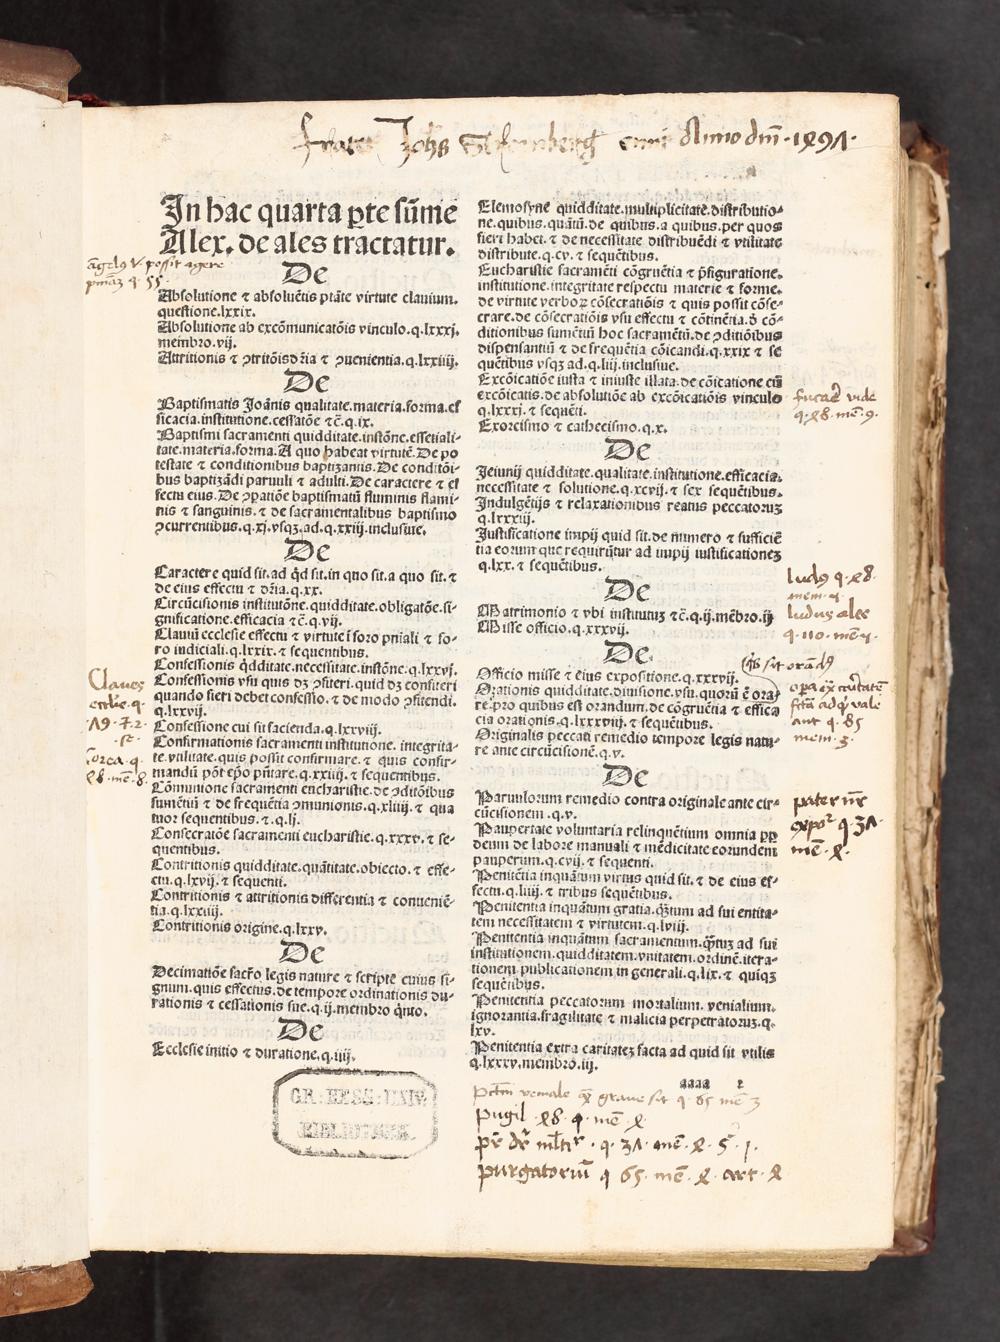 frater Johs Anno dm 1491
In hac quarta ꝑte sūme
Alex. de ales tractatur.
De
Absolutione ⁊ absoluētis ptāte virtute clauium.
questione.lxxix.
Absolutione ab excōmunicatōis vinculo.q.lxxxj.
membro.vij.
Attritionis ⁊ ꝯtritōis dr̄ia ⁊ ꝯuenientia.q.lxxiiij.
De
Baptismatis Joānis qualitate.materia.forma.ef
ficacia.institutione.cessatōe ⁊c̄.q.ix.
Baptismi sacramenti quidditate.instōne.essetiali-
tate.materia.forma.A quo habeat virtutē.De po
testate ⁊ conditionibus baptizantis.De conditōi-
bus baptizādi paruuli ⁊ adulti.De caractere ⁊ ef
fectu eius.De ꝯpatiōe baptismatū fluminis flami-
nis ⁊ sanguinis.⁊ de sacramentalibus baptismo
ꝯcurrentibus.q.xj.vsqꝫ.ad.q.xxiij.inclusiue.
De
Caractere quid sit.ad qd̄ sit.in quo sit.a quo sit.⁊
de eius effectu ⁊ dr̄ia.q.xx.
Circūcisionis institutōne.quidditate.obligatōe.si-
gnificatione.efficacia ⁊c̄.q.vij.
Clauiū ecclesie effectu ⁊ virtute ī foro pn̄iali ⁊ fo-
ro iudiciali.q.lxxix.⁊ sequentibus.
Confessionis qd̄ditate.necessitate.instōne.q.lxxvj.
Confessionis vsu quis dꝫ ꝯfiteri.quid dꝫ confiteri
quando fieri debet confessio.⁊ de modo ꝯfitendi.
q.lxxvij.
Confessione cui sit facienda.q.lxxviij.
Confirmationis sacramenti institutione. integrita-
te.vtilitate.quis possit confirmare.⁊ quis confir-
mandū pōt ep̄o pn̄tare.q.xxiiij.⁊ sequentibus.
Cōmunione sacramenti eucharistie.de ꝯditōibus
sumētiū ⁊ de frequētia ꝯmunionis.q.xliiij.⁊ qua
tuor sequentibus.⁊ q.lj.
Consecratōe sacramenti eucharistie.q.xxxv.⁊ se-
quentibus.
Contritionis quidditate.quātitate.obiecto.⁊ effe-
ctu.q.lxvij.⁊ sequenti.
Contritionis ⁊ attritionis differentia ⁊ conueniē-
tia.q.lxxiiij.
Contritionis origine.q.lxxv.
De
Decimatiōe sacr̄o legis nature ⁊ scripte cuius si-
gnum.quis effectus.de tempore ordinationis du-
rationis ⁊ cessationis sue.q.ij.membro qn̄to.
De
Ecclesie initio ⁊ duratione.q.iiij.
GR: HESS: UNIV.
BIBLIOTHEK.
Elemosyne quidditate.multiplicitate.distributio-
ne.quibus.quātū.de quibus.a quibus.per quos
fieri habet.⁊ de necessitate distribuēdi ⁊ vtilitate
distribute.q.cv.⁊ sequētibus.
Eucharistie sacramēti cōgruētia ⁊ p̄figuratione.
institutione.integritate respectu materie ⁊ forme.
de virtute verboꝝ cōsecratiōis ⁊ quis possit cōse-
crare.de cōsecratiōis vsu effectu ⁊ cōtinētia.d̄ cō-
ditionibus sumētiū hoc sacramētū.de ꝯditiōibus
dispensantiū ⁊ de frequētia cōicandi.q.xxix ⁊ se
quētibus vsqꝫ ad.q.liij.inclusiue.
Excōicatiōe iusta ⁊ iniuste illata.de cōicatione cū
excōicatis.de absolutiōe ab excōicatiōis vinculo
q.lxxxj.⁊ sequēti.
Exorcismo ⁊ cathecismo.q.x.
De
Jeiunij quidditate.qualitate.institutione.efficacia.
necessitate ⁊ solutione.q.xcvij.⁊ sex sequētibus.
Indulgētijs ⁊ relaxationibus reatus peccatoruꝫ
q.lxxxiij.
Justificatione impij quid sit.de numero ⁊ sufficiē
tia eorum que requirūtur ad impij iustificationeꝫ
q.lxx.⁊ sequētibus.
De
Matrimonio ⁊ vbi institutuꝫ ⁊c̄.q.ij.mēbro.ij
Misse officio.q.xxxvij.
De
Officio misse ⁊ eius expositione.q.xxxvij.
Orationis quidditate.diuisione.vsu.quorū ē ora-
re.pro quibus est orandum.de cōgruētia ⁊ effica
cia orationis.q.lxxxviij.⁊ sequētibus.
Originalis peccati remedio tempore legis natu-
re ante circūcisionē.q.v.
De
Paruulorum remedio contra originale ante cir-
cūcisionem.q.v.
Paupertate voluntaria relinquētium omnia ꝓpꝑ
deum de labore manuali ⁊ mēdicitate eorundem
pauperum.q.cvij.⁊ sequenti.
Penitētia inquātum virtus quid sit.⁊ de eius ef-
fectu.q.liiij.⁊ tribus sequētibus.
Penitentia inquātum gratia.qꝫtum ad sui entita-
tem necessitatem ⁊ virtutem.q.lviij.
Penitentia inquātum sacramentum.qꝫtuꝫ ad sui
institutionem.quidditatem.vnitatem.ordinē.itera-
tionem publicationem in generali.q.lix.⁊ quiqꝫ
sequētibus.
Penitentia peccatorum mortalium. venialium.
ignorantia.fragilitate ⁊ malicia perpetratoruꝫ.q.
lxv.
Penitentia extra caritateꝫ facta ad quid sit vtilis
q.lxxxv.membro.iij.
pctm veniale grave sit q 65 mē 3
pugil 28 q mē 2
q 31 mē 2
purgatoriū q 65 mē 2 art 2
angelus possit agere
q 55
Claves
79 7 2
q
28 mē 8
vide
q 28 mē 9
ludus q 28
mem
ludus alee
q 110 mē
sit
vale
q 85
mem 3
pater nr
expoʳ q 31
mē 2